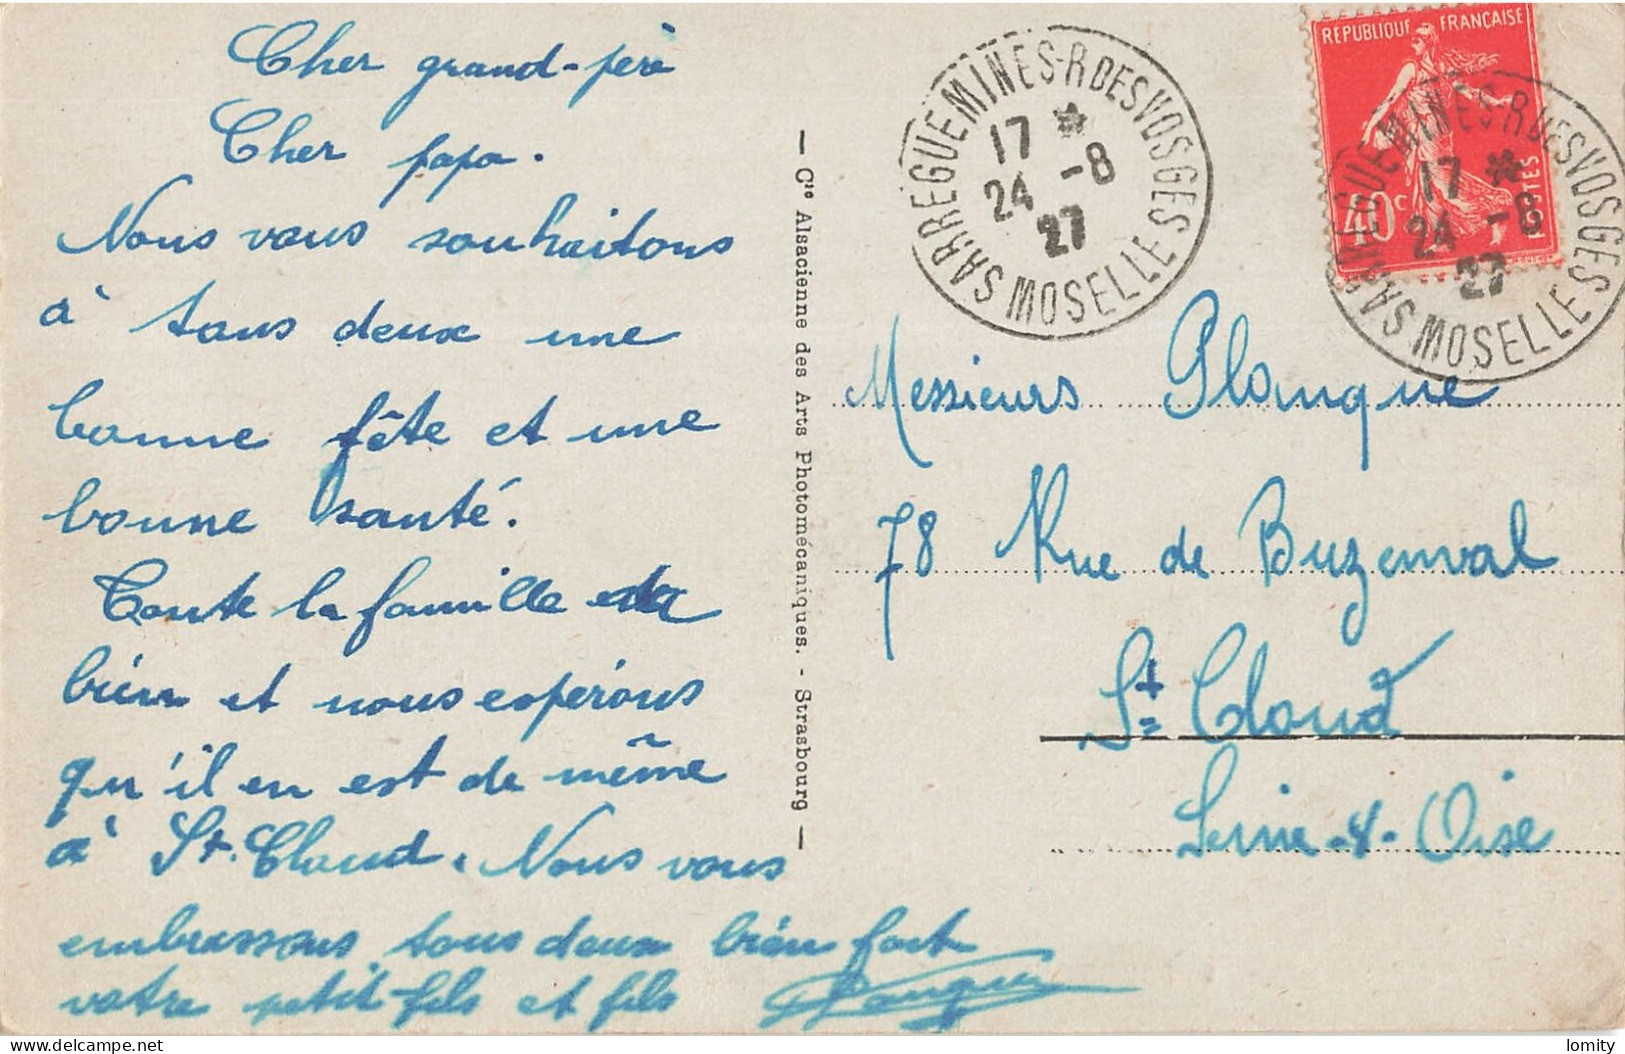 Cher grand-père
Cher papa.
Nous vous souhaitons
à tous deux une
bonne fête et une
bonne santé.
Toute la famille est
bien et nous espérons
qu'il en est de même
à St. Cloud. Nous vous
embrassons tous deux bien fort
votre petit-fils et fils Planque
— Cie Alsacienne des Arts Photomécaniques. - Strasbourg —
SARREGUEMINES-R DES VOSGES
17 *
24 -8
27
MOSELLE
REPUBLIQUE FRANÇAISE
40c
POSTES
SARREGUEMINES-R DES VOSGES
17 *
24 -8
27
MOSELLE
Messieurs Planque
78 Rue de Buzenval
St Cloud
Seine-&-Oise
delcampe.net
lomity